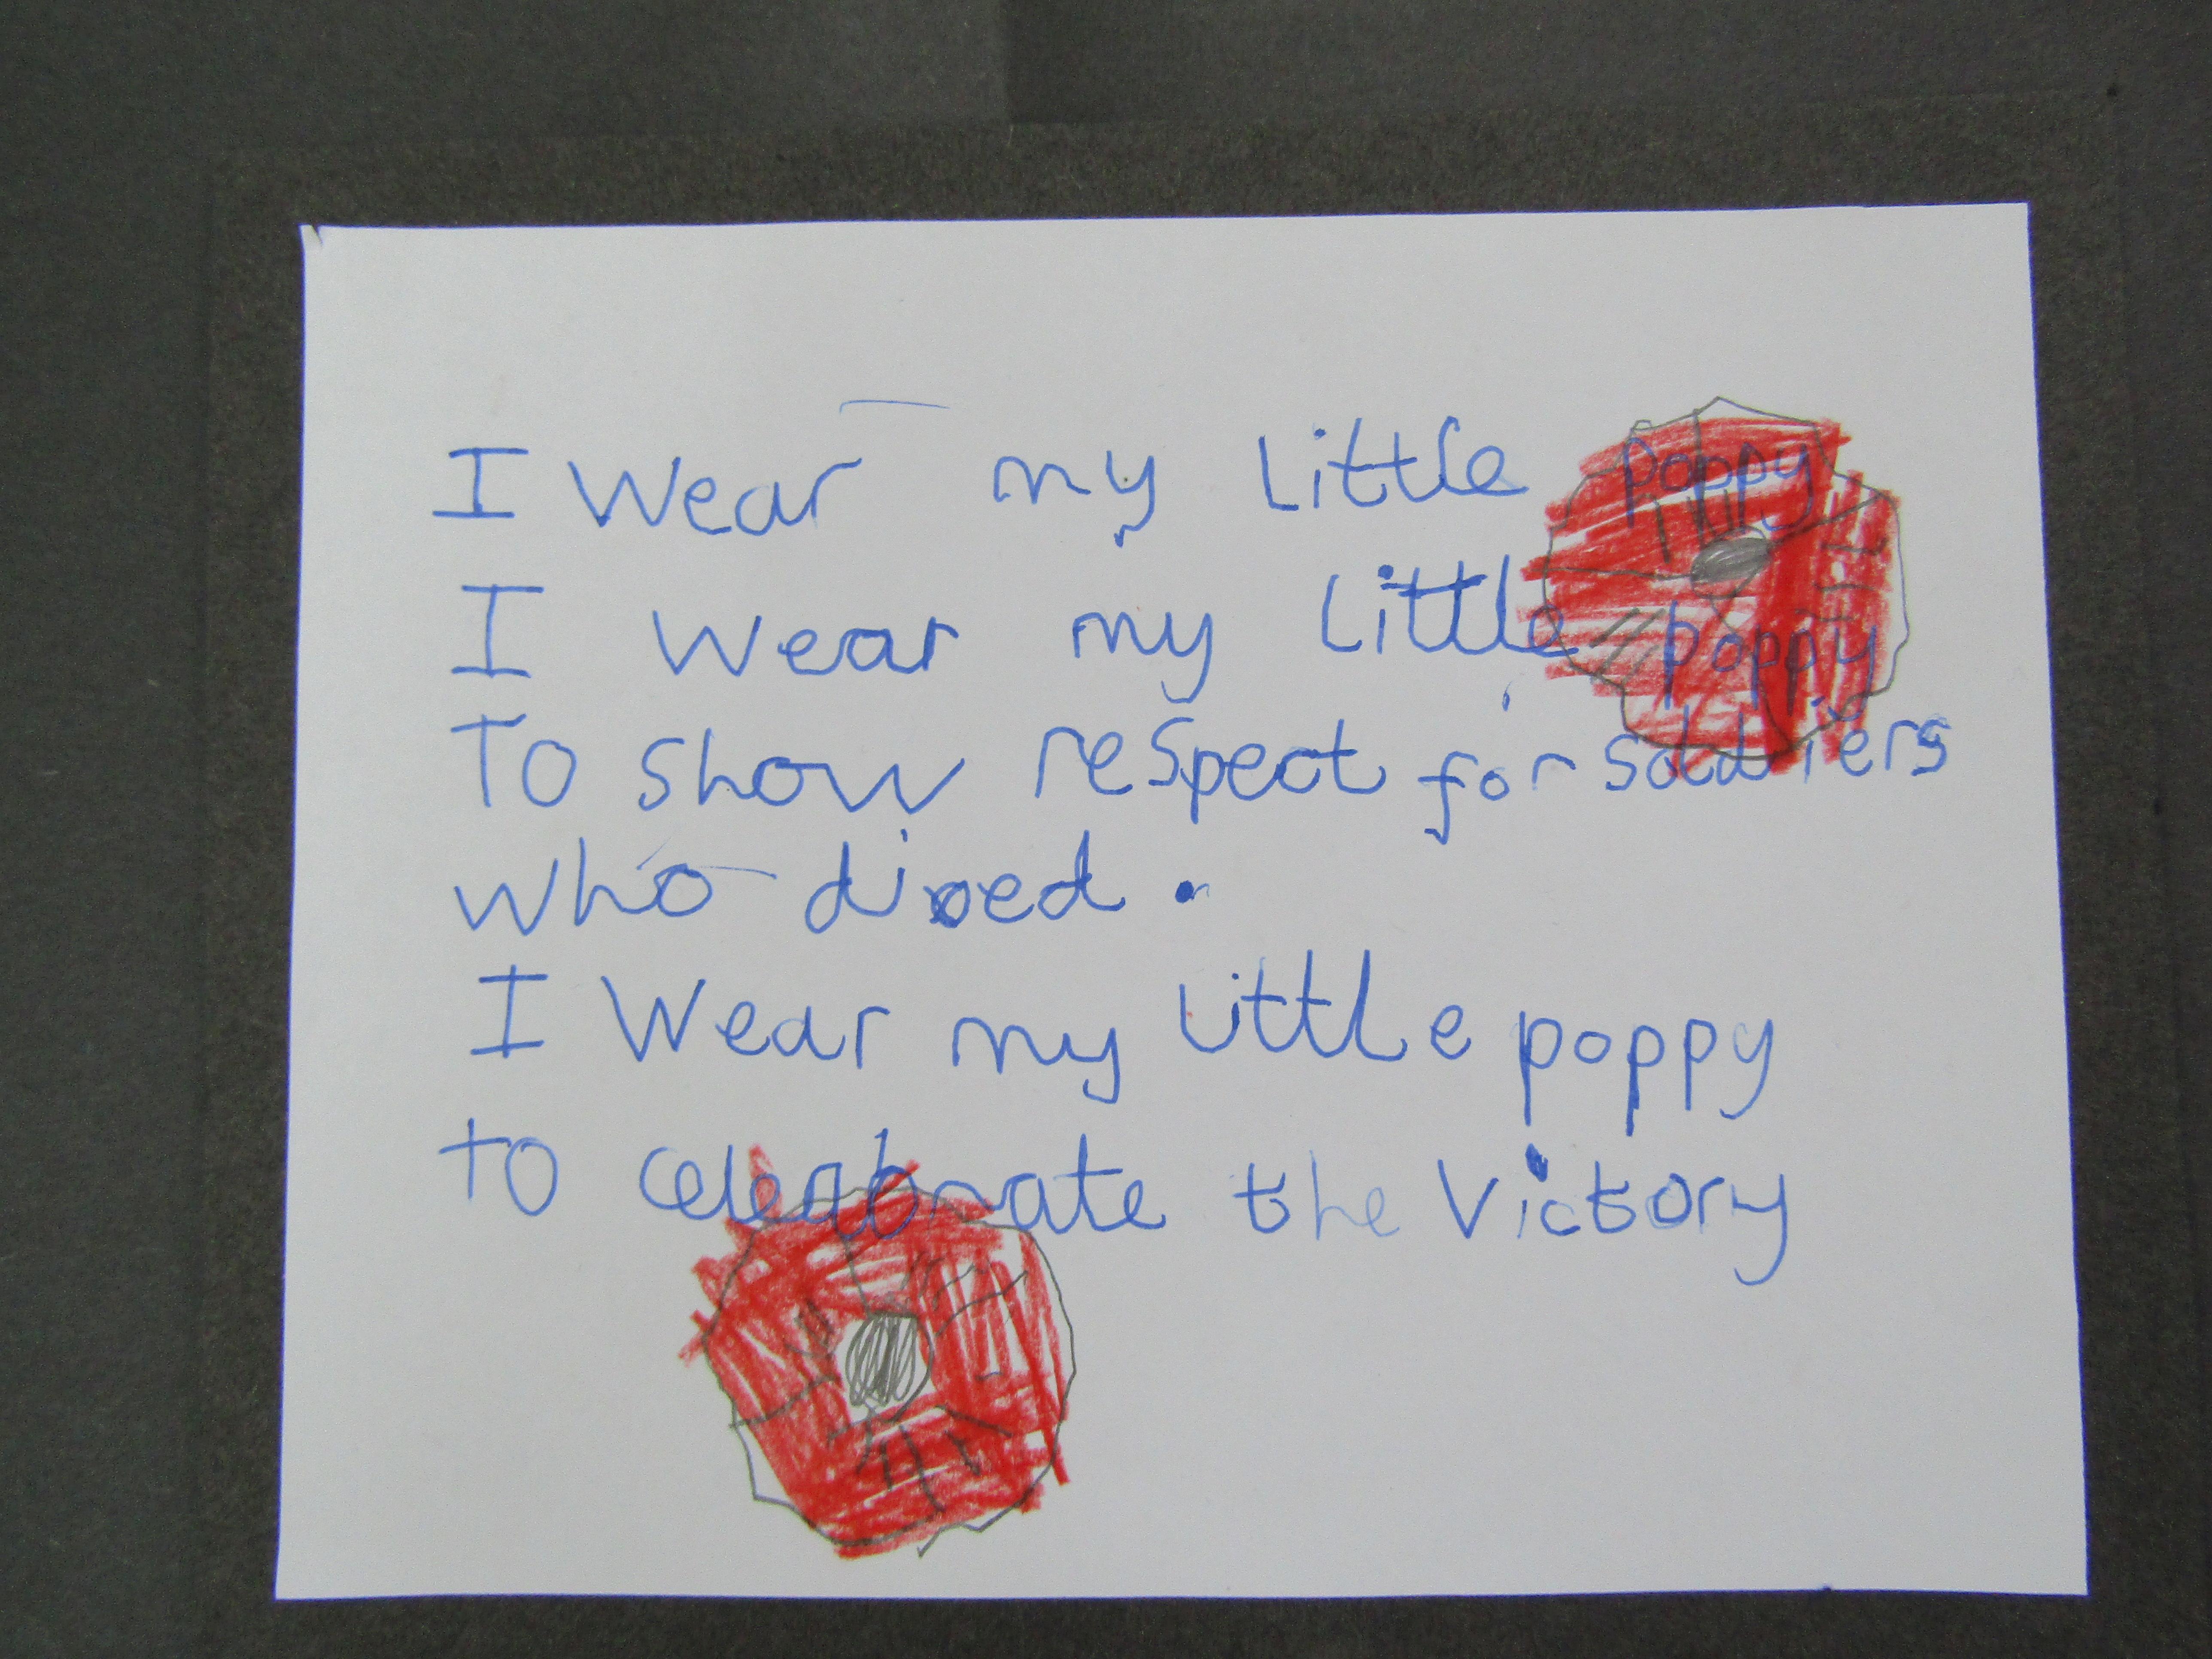 I Wear my Little poppy
I wear my Little poppy
To show respect for soldiers
who dioed.
I Wear my Little poppy
to celeabrate the Victory